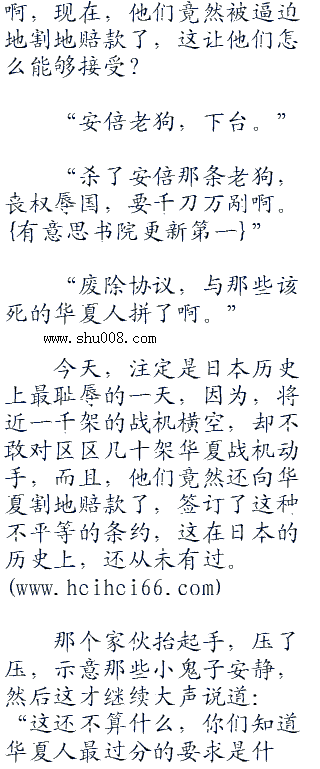 啊，现在，他们竟然被逼迫
地割地赔款了，这让他们怎
么能够接受？
“安倍老狗，下台。”
“杀了安倍那条老狗，
丧权辱国，要千刀万剐啊。
{有意思书院更新第一}”
“废除协议，与那些该
死的华夏人拼了啊。”
www.shu008.com
今天，注定是日本历史
上最耻辱的一天，因为，将
近一千架的战机横空，却不
敢对区区几十架华夏战机动
手，而且，他们竟然还向华
夏割地赔款了，签订了这种
不平等的条约，这在日本的
历史上，还从未有过。
(www.hcihci66.com)
那个家伙抬起手，压了
压，示意那些小鬼子安静，
然后这才继续大声说道：
“这还不算什么，你们知道
华夏人最过分的要求是什